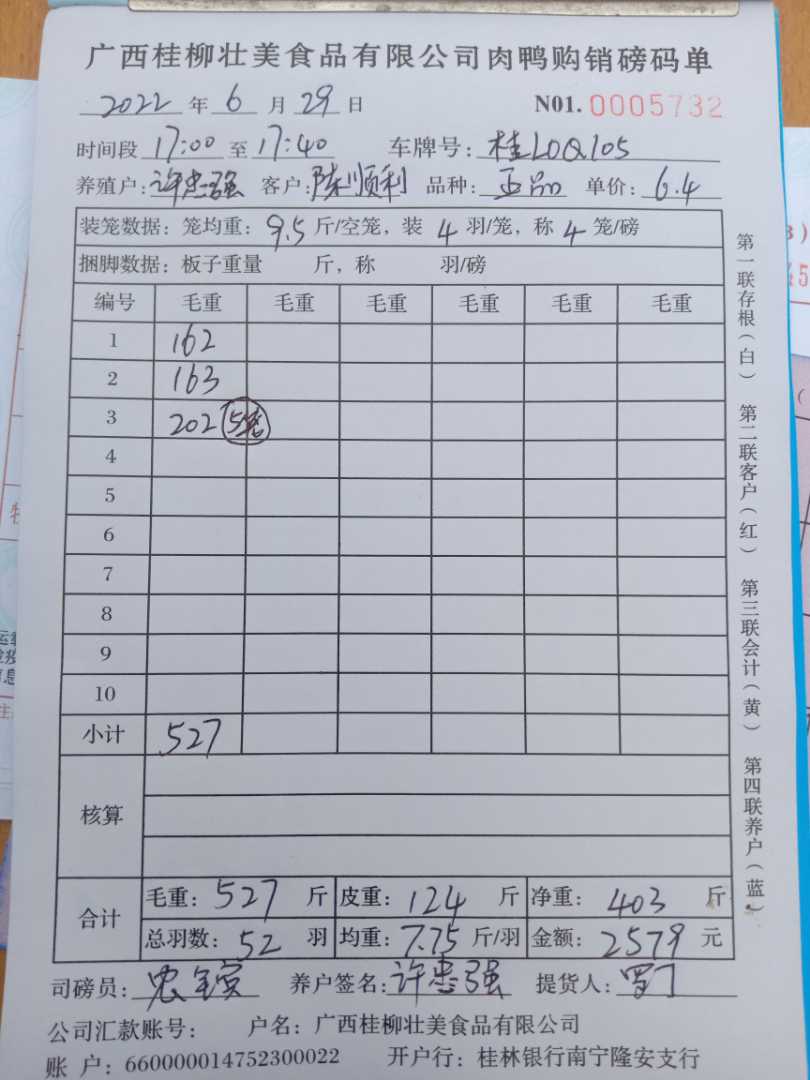 广西桂柳壮美食品有限公司肉鸭购销磅码单
2022 年 6 月 29 日 N01. 0005732
时间段 17:00 至 17:40 车牌号: 桂L0Q105
养殖户: 许忠强 客户: 陈顺利 品种: 正品 单价: 6.4
装笼数据: 笼均重: 9.5 斤/空笼, 装 4 羽/笼, 称 4 笼/磅
捆脚数据: 板子重量 斤, 称 羽/磅
编号 毛重 毛重 毛重 毛重 毛重 毛重
1 162
2 163
3 202 5笼
4
5
6
7
8
9
10
小计 527
核算
合计 毛重: 527 斤 皮重: 124 斤 净重: 403 斤
总羽数: 52 羽 均重: 7.75 斤/羽 金额: 2579 元
司磅员: 养户签名: 许忠强 提货人:
公司汇款账号: 户名: 广西桂柳壮美食品有限公司
账 户: 660000014752300022 开户行: 桂林银行南宁隆安支行
第一联存根(白) 第二联客户(红) 第三联会计(黄) 第四联养户(蓝)